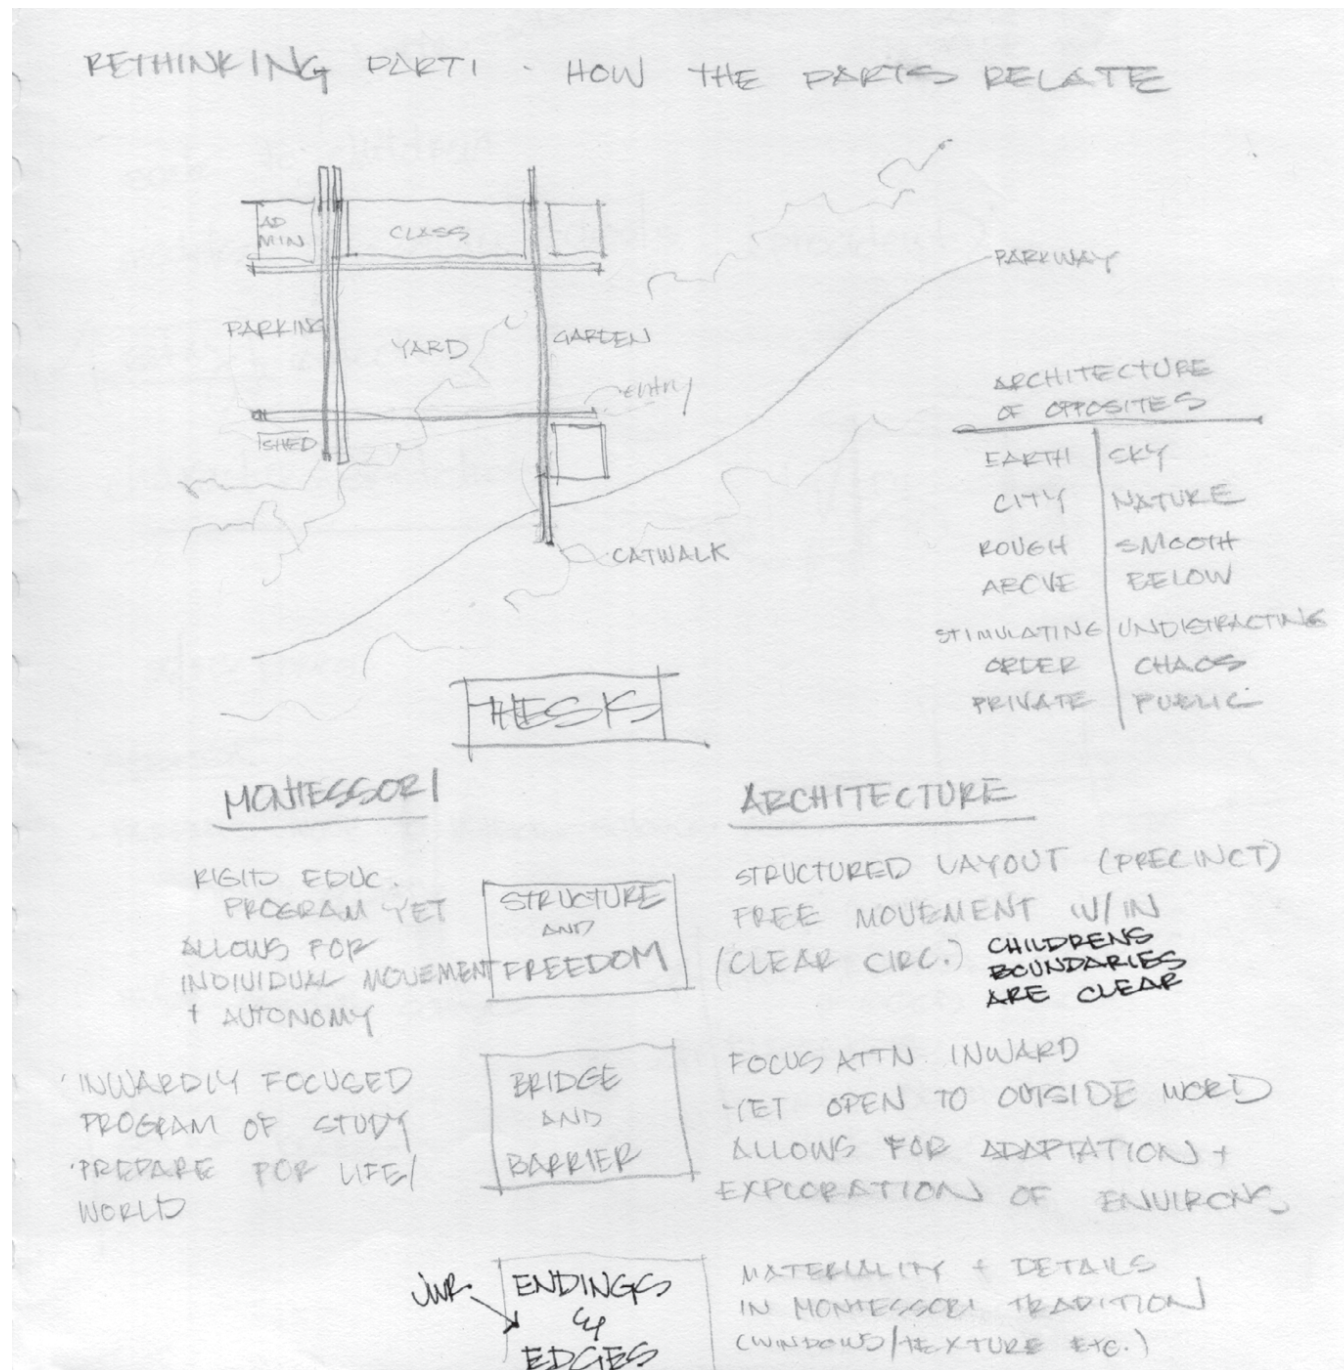 RETHINKING PARTI - HOW THE PARTS RELATE
AD
MIN
CLASS
PARKWAY
PARKING
YARD
GARDEN
ENTRY
SHED
CATWALK
ARCHITECTURE
OF OPPOSITES
EARTH SKY
CITY NATURE
ROUGH SMOOTH
ABOVE BELOW
STIMULATING UNDISTRACTING
ORDER CHAOS
PRIVATE PUBLIC
THESIS
MONTESSORI
RIGID EDUC.
PROGRAM YET
ALLOWS FOR
INDIVIDUAL MOVEMENT
+ AUTONOMY
STRUCTURE
AND
FREEDOM
ARCHITECTURE
STRUCTURED LAYOUT (PRECINCT)
FREE MOVEMENT W/IN
(CLEAR CIRC.)
CHILDRENS
BOUNDARIES
ARE CLEAR
·INWARDLY FOCUSED
PROGRAM OF STUDY
·PREPARE FOR LIFE/
WORLD
BRIDGE
AND
BARRIER
FOCUS ATTN. INWARD
YET OPEN TO OUTSIDE WORD
ALLOWS FOR ADAPTATION +
EXPLORATION OF ENVIRONS
JWR.
ENDINGS
&
EDGES
MATERIALITY + DETAILS
IN MONTESSORI TRADITION
(WINDOWS/TEXTURE ETC.)